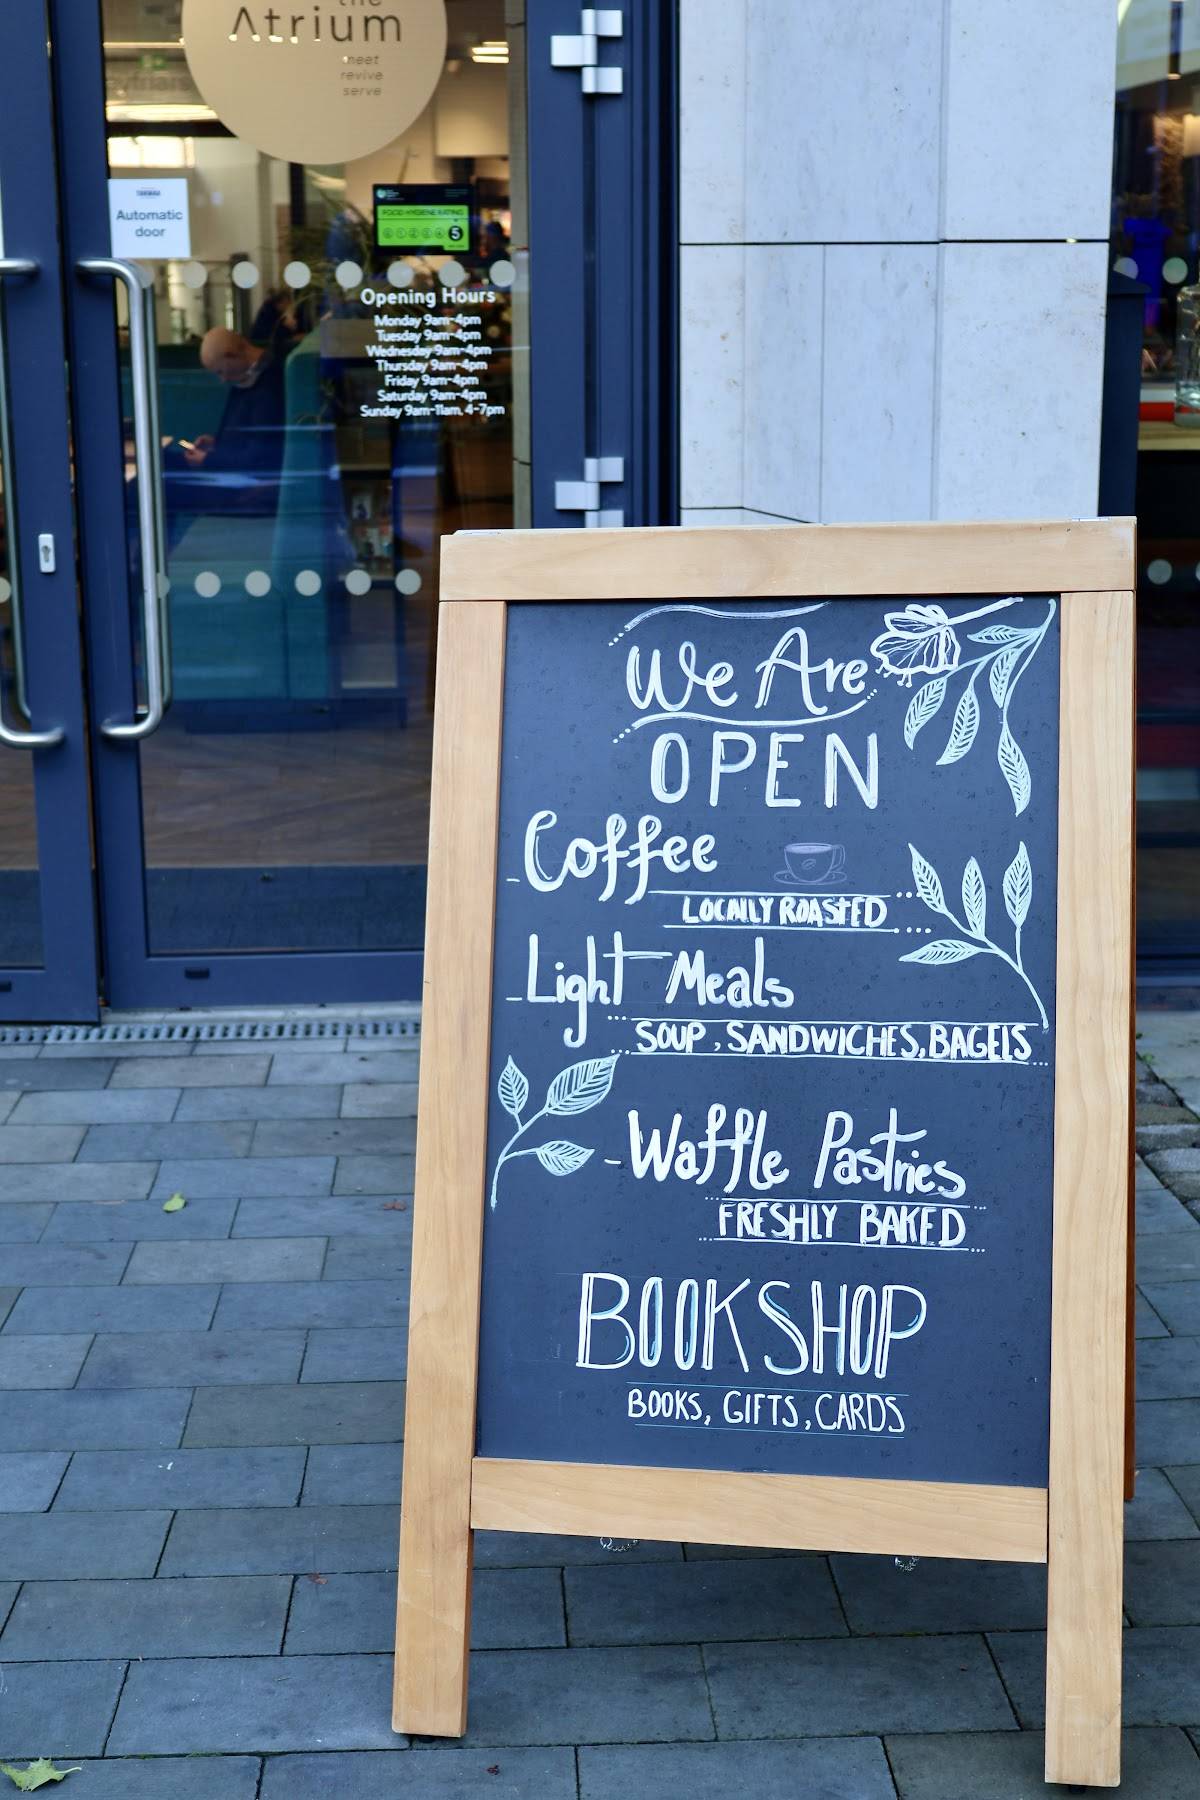 the
Atrium
meet
revive
serve
Automatic
door
FOOD HYGIENE RATING
0 1 2 3 4 5
Opening Hours
Monday 9am-4pm
Tuesday 9am-4pm
Wednesday 9am-4pm
Thursday 9am-4pm
Friday 9am-4pm
Saturday 9am-4pm
Sunday 9am-11am, 4-7pm
We Are
OPEN
- Coffee
LOCALLY ROASTED
- Light Meals
SOUP, SANDWICHES, BAGELS
- Waffle Pastries
FRESHLY BAKED
BOOKSHOP
BOOKS, GIFTS, CARDS